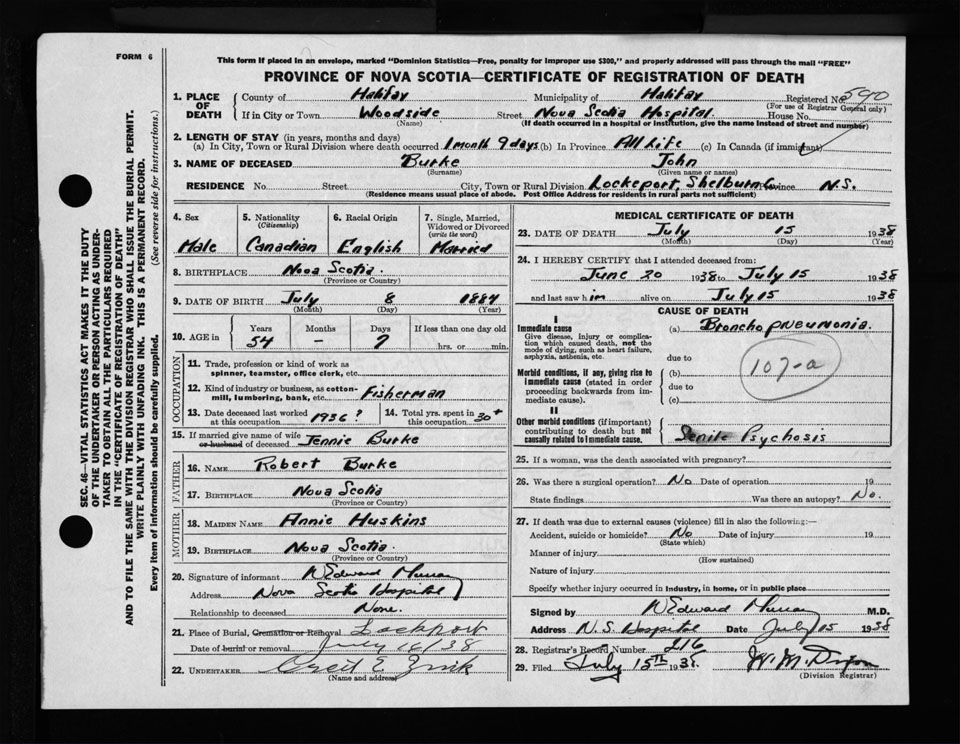 FORM 6
This form if placed in an envelope, marked "Dominion Statistics—Free, penalty for improper use $300," and properly addressed will pass through the mail "FREE"
PROVINCE OF NOVA SCOTIA—CERTIFICATE OF REGISTRATION OF DEATH
1. PLACE OF DEATH County of Halifax Municipality of Halifax Registered No. 590
(For use of Registrar General only)
If in City or Town Woodside Street Nova Scotia Hospital House No.
(Name) (If death occurred in a hospital or institution, give the name instead of street and number)
2. LENGTH OF STAY (in years, months and days)
(a) In City, Town or Rural Division where death occurred 1 month 9 days (b) In Province All Life (c) In Canada (if immigrant)
3. NAME OF DECEASED Burke John
(Surname) (Given name or names)
RESIDENCE No. Street City, Town or Rural Division Lockeport, Shelburn Co. Province N.S.
(Residence means usual place of abode. Post Office Address for residents in rural parts not sufficient)
4. Sex Male
5. Nationality (Citizenship) Canadian
6. Racial Origin English
7. Single, Married, Widowed or Divorced (write the word) Married
8. BIRTHPLACE Nova Scotia.
(Province or Country)
9. DATE OF BIRTH July 8 1884
(Month) (Day) (Year)
10. AGE in Years 54 Months — Days 7 If less than one day old hrs. or min.
OCCUPATION
11. Trade, profession or kind of work as spinner, teamster, office clerk, etc.
12. Kind of industry or business, as cotton-mill, lumbering, bank, etc. Fisherman
13. Date deceased last worked at this occupation 1936 ?
14. Total yrs. spent in this occupation 30+
15. If married give name of wife or husband of deceased Jennie Burke
FATHER
16. NAME Robert Burke
17. BIRTHPLACE Nova Scotia
(Province or Country)
MOTHER
18. MAIDEN NAME Annie Huskins
19. BIRTHPLACE Nova Scotia.
(Province or Country)
20. Signature of informant W Edward Murray
Address Nova Scotia Hospital
Relationship to deceased None.
21. Place of Burial, Cremation or Removal Lockport
Date of burial or removal July 16/38
22. UNDERTAKER Cecil E. Zink
(Name and address)
MEDICAL CERTIFICATE OF DEATH
23. DATE OF DEATH July 15 1938
(Month) (Day) (Year)
24. I HEREBY CERTIFY that I attended deceased from:
June 20 1938 to July 15 1938
and last saw him alive on July 15 1938
CAUSE OF DEATH
I
Immediate cause
Give disease, injury or complication which caused death, not the mode of dying, such as heart failure, asphyxia, asthenia, etc.
(a) Bronchopneumonia.
due to
Morbid conditions, if any, giving rise to immediate cause (stated in order proceeding backwards from immediate cause).
(b)
due to
(c)
107-a
II
Other morbid conditions (if important) contributing to death but not causally related to immediate cause.
Senile Psychosis
25. If a woman, was the death associated with pregnancy?
26. Was there a surgical operation? No Date of operation 19
State findings Was there an autopsy? No.
27. If death was due to external causes (violence) fill in also the following:—
Accident, suicide or homicide? No Date of injury 19
(State which)
Manner of injury
(How sustained)
Nature of injury
Specify whether injury occurred in industry, in home, or in public place
Signed by W Edward Murray M.D.
Address N.S. Hospital Date July 15 1938
28. Registrar's Record Number 216
29. Filed July 15th 1938. W. M. Dixon
(Division Registrar)
SEC. 46—VITAL STATISTICS ACT MAKES IT THE DUTY
OF THE UNDERTAKER OR PERSON ACTING AS UNDER-
TAKER TO OBTAIN ALL THE PARTICULARS REQUIRED
IN THE "CERTIFICATE OF REGISTRATION OF DEATH"
AND TO FILE THE SAME WITH THE DIVISION REGISTRAR WHO SHALL ISSUE THE BURIAL PERMIT.
WRITE PLAINLY WITH UNFADING INK. THIS IS A PERMANENT RECORD.
Every item of information should be carefully supplied. (See reverse side for instructions.)